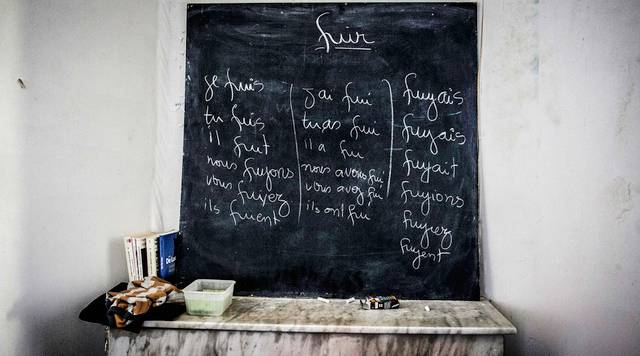 fuir
je fuis
tu fuis
il fuit
nous fuyons
vous fuyez
ils fuient
j'ai fui
tu as fui
il a fui
nous avons fui
vous avez fui
ils ont fui
fuyais
fuyais
fuyait
fuyions
fuyiez
fuyent